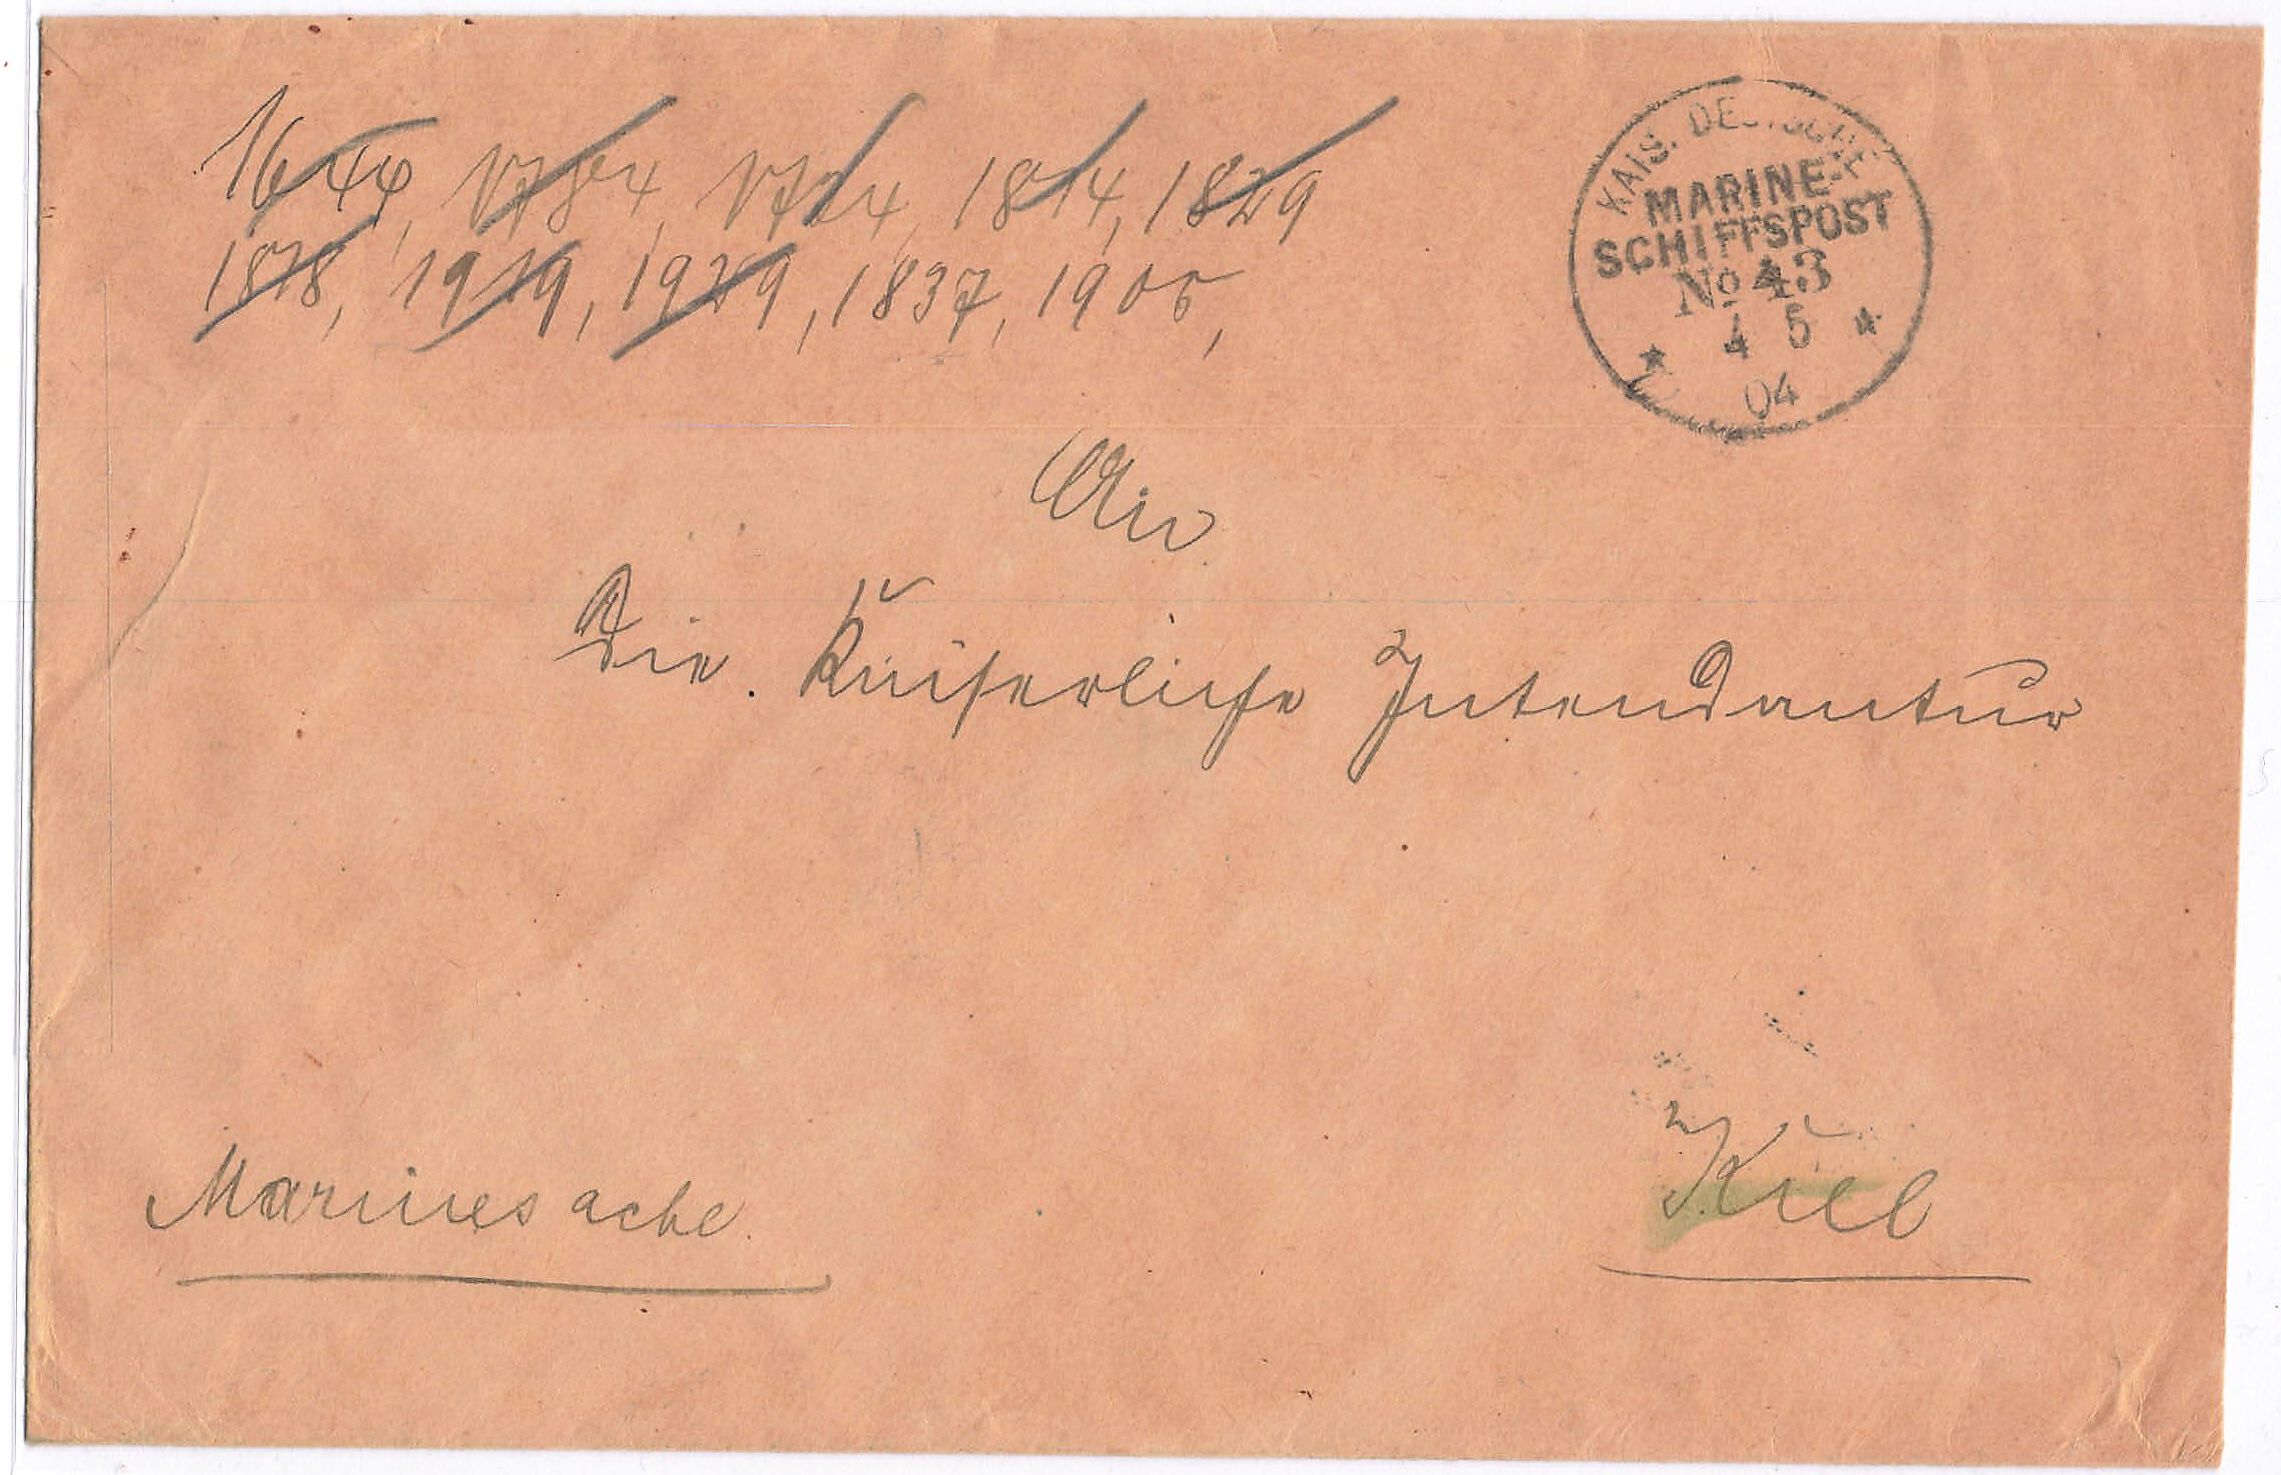 1644, 1784, 1724, 1814, 1829
1878, 1919, 1929, 1837, 1905,
KAIS. DEUTSCHE
MARINE-
SCHIFFSPOST
No 43
4 5
04
An
Die Kaiserliche Intendantur
Kiel
Marinesache.